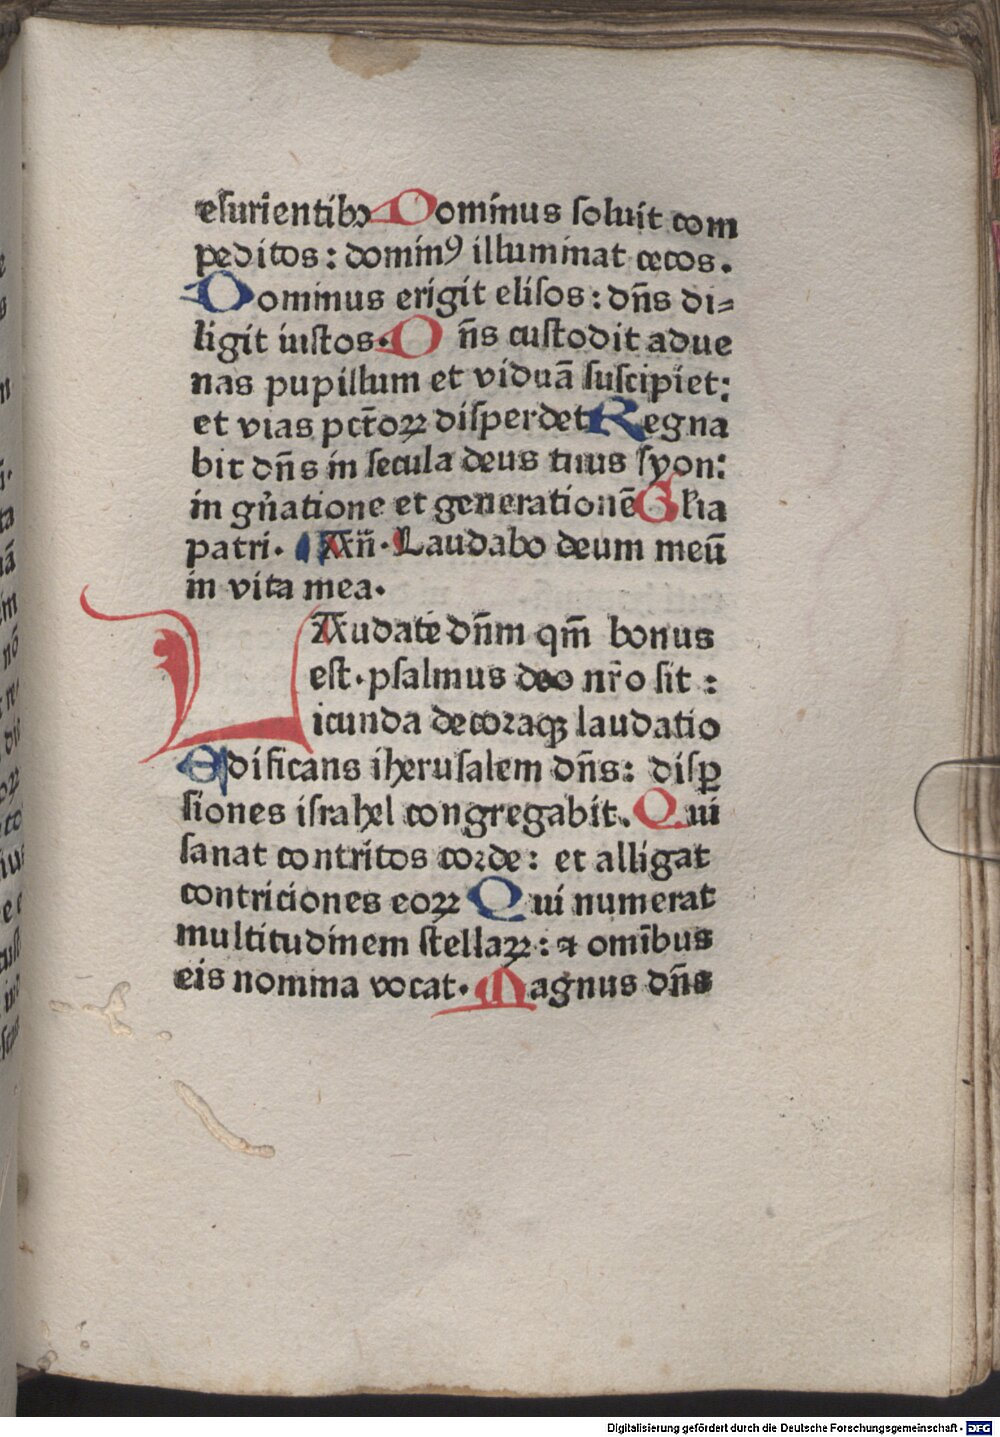 eſurientibꝫ Dominus ſoluit com
peditos : dominꝰ illuminat cecos .
Dominus erigit eliſos : dn̄s di⸗
ligit iuſtos . Dn̄s cuſtodit adue
nas pupillum et viduā ſuſcipiet :
et vias pct̄oꝝ diſperdet Regna
bit dn̄s in ſecula deus tuus ſyon :
in gn̄atione et generationē Gl'ia
patri . An̄ . Laudabo deum meū
in vita mea .
LAudate dn̄m qm̄ bonus
eſt . pſalmus deo nr̄o ſit :
icunda decoraqꝫ laudatio
Edificans iheruſalem dn̄s : diſꝑ
ſiones iſrahel congregabit . Qui
ſanat contritos corde : et alligat
contriciones eoꝝ Qui numerat
multitudinem ſtellaꝝ : ⁊ omībus
eis nomina vocat . Magnus dn̄s
Digitalisierung gefördert durch die Deutsche Forschungsgemeinschaft - DFG